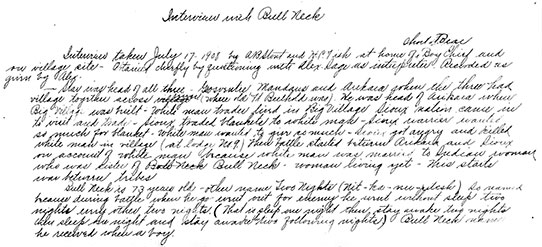 Interview with Bull Neck
Chas. T. Bear
Interview taken July 17 1908 by A R Stout and at home of Boy Chief and
on village site - Obtained chiefly by questioning with Alex Sage as interpreter Recorded as
given by Alex.
- Star was head of all three - Mandans and Arikara when the three had
village together across (where old Ft Berthold was) He was head of Arikara when
Big Village was built - White man trader lived in Big Village Sioux Indian came in
to visit and trade - Sioux traded blankets to white man - Sioux warrior wanted
so much for blanket - White man wanted to give as much - Sioux got angry and killed
white man in village (at lodge No 9) Then battle started between Arikara and Sioux
on account of white man because white man was married to Indian woman
who was sister of Bull Neck - woman living yet - This starts
war between tribes
Bull Neck is 73 years old - other name Two Nights (Nit-ka-) so named
because during battle when he go went out for enemy he went without sleep two
nights every other two nights (That is sleep one night then stay awake two nights
then sleep one night and stay awake two following nights) Bull Neck name
he received when a boy.